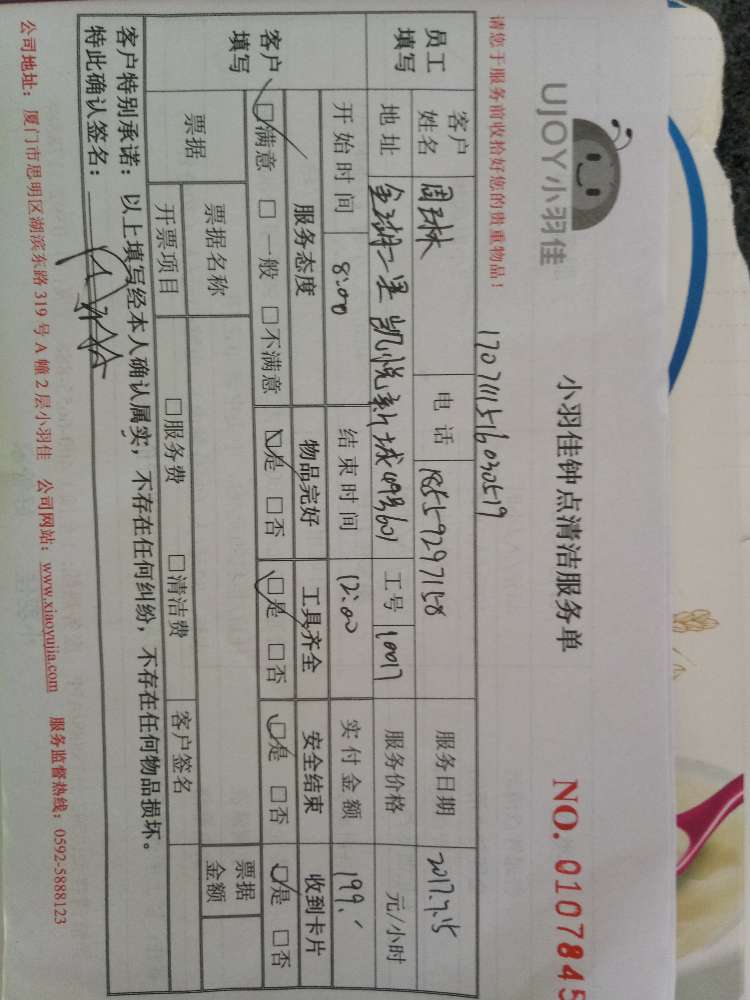 UJOY小羽佳
小羽佳钟点清洁服务单
NO. 0107845
请您于服务前收拾好您的贵重物品！
170711516030519
员工填写 客户姓名 电话 18559297158 服务日期 2017.7.15
地址 凯悦新城 工号 10017 服务价格 元/小时
开始时间 8:00 结束时间 12:00 实付金额 199.
客户填写 服务态度 物品完好 工具齐全 安全结束 收到卡片
□满意 □一般 □不满意 □是 □否 □是 □否 □是 □否 □是 □否
票据 票据名称 票据金额
开票项目 □服务费 □清洁费 客户签名
客户特别承诺：以上填写经本人确认属实，不存在任何纠纷，不存在任何物品损坏。
特此确认签名：
公司地址：厦门市思明区湖滨东路 319 号 A 幢 2 层小羽佳 公司网站：www.xiaoyujia.com 服务监督热线：0592-5888123